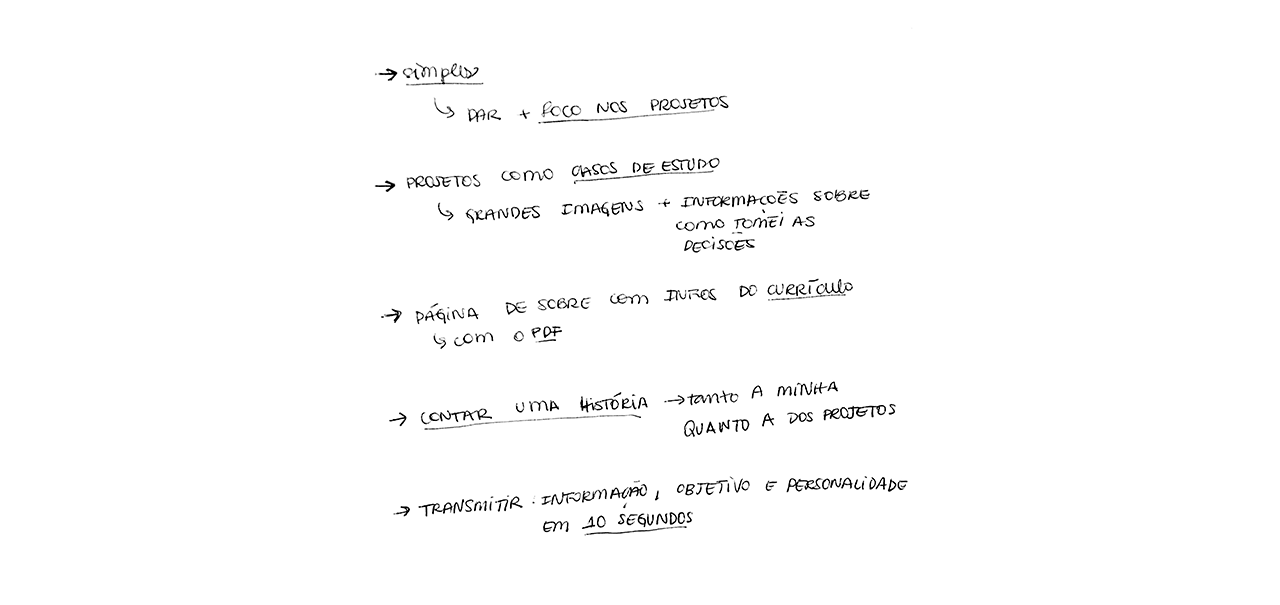 → simples
↳ DAR + FOCO NOS PROJETOS
→ PROJETOS COMO CASOS DE ESTUDO
↳ GRANDES IMAGENS + INFORMAÇÕES SOBRE
COMO TOMEI AS
DECISÕES
→ PÁGINA DE SOBRE COM INFOS DO CURRÍCULO
↳ COM O PDF
→ CONTAR UMA HISTÓRIA → tanto A MINHA
QUANTO A DOS PROJETOS
→ TRANSMITIR: INFORMAÇÃO, OBJETIVO E PERSONALIDADE
EM 10 SEGUNDOS